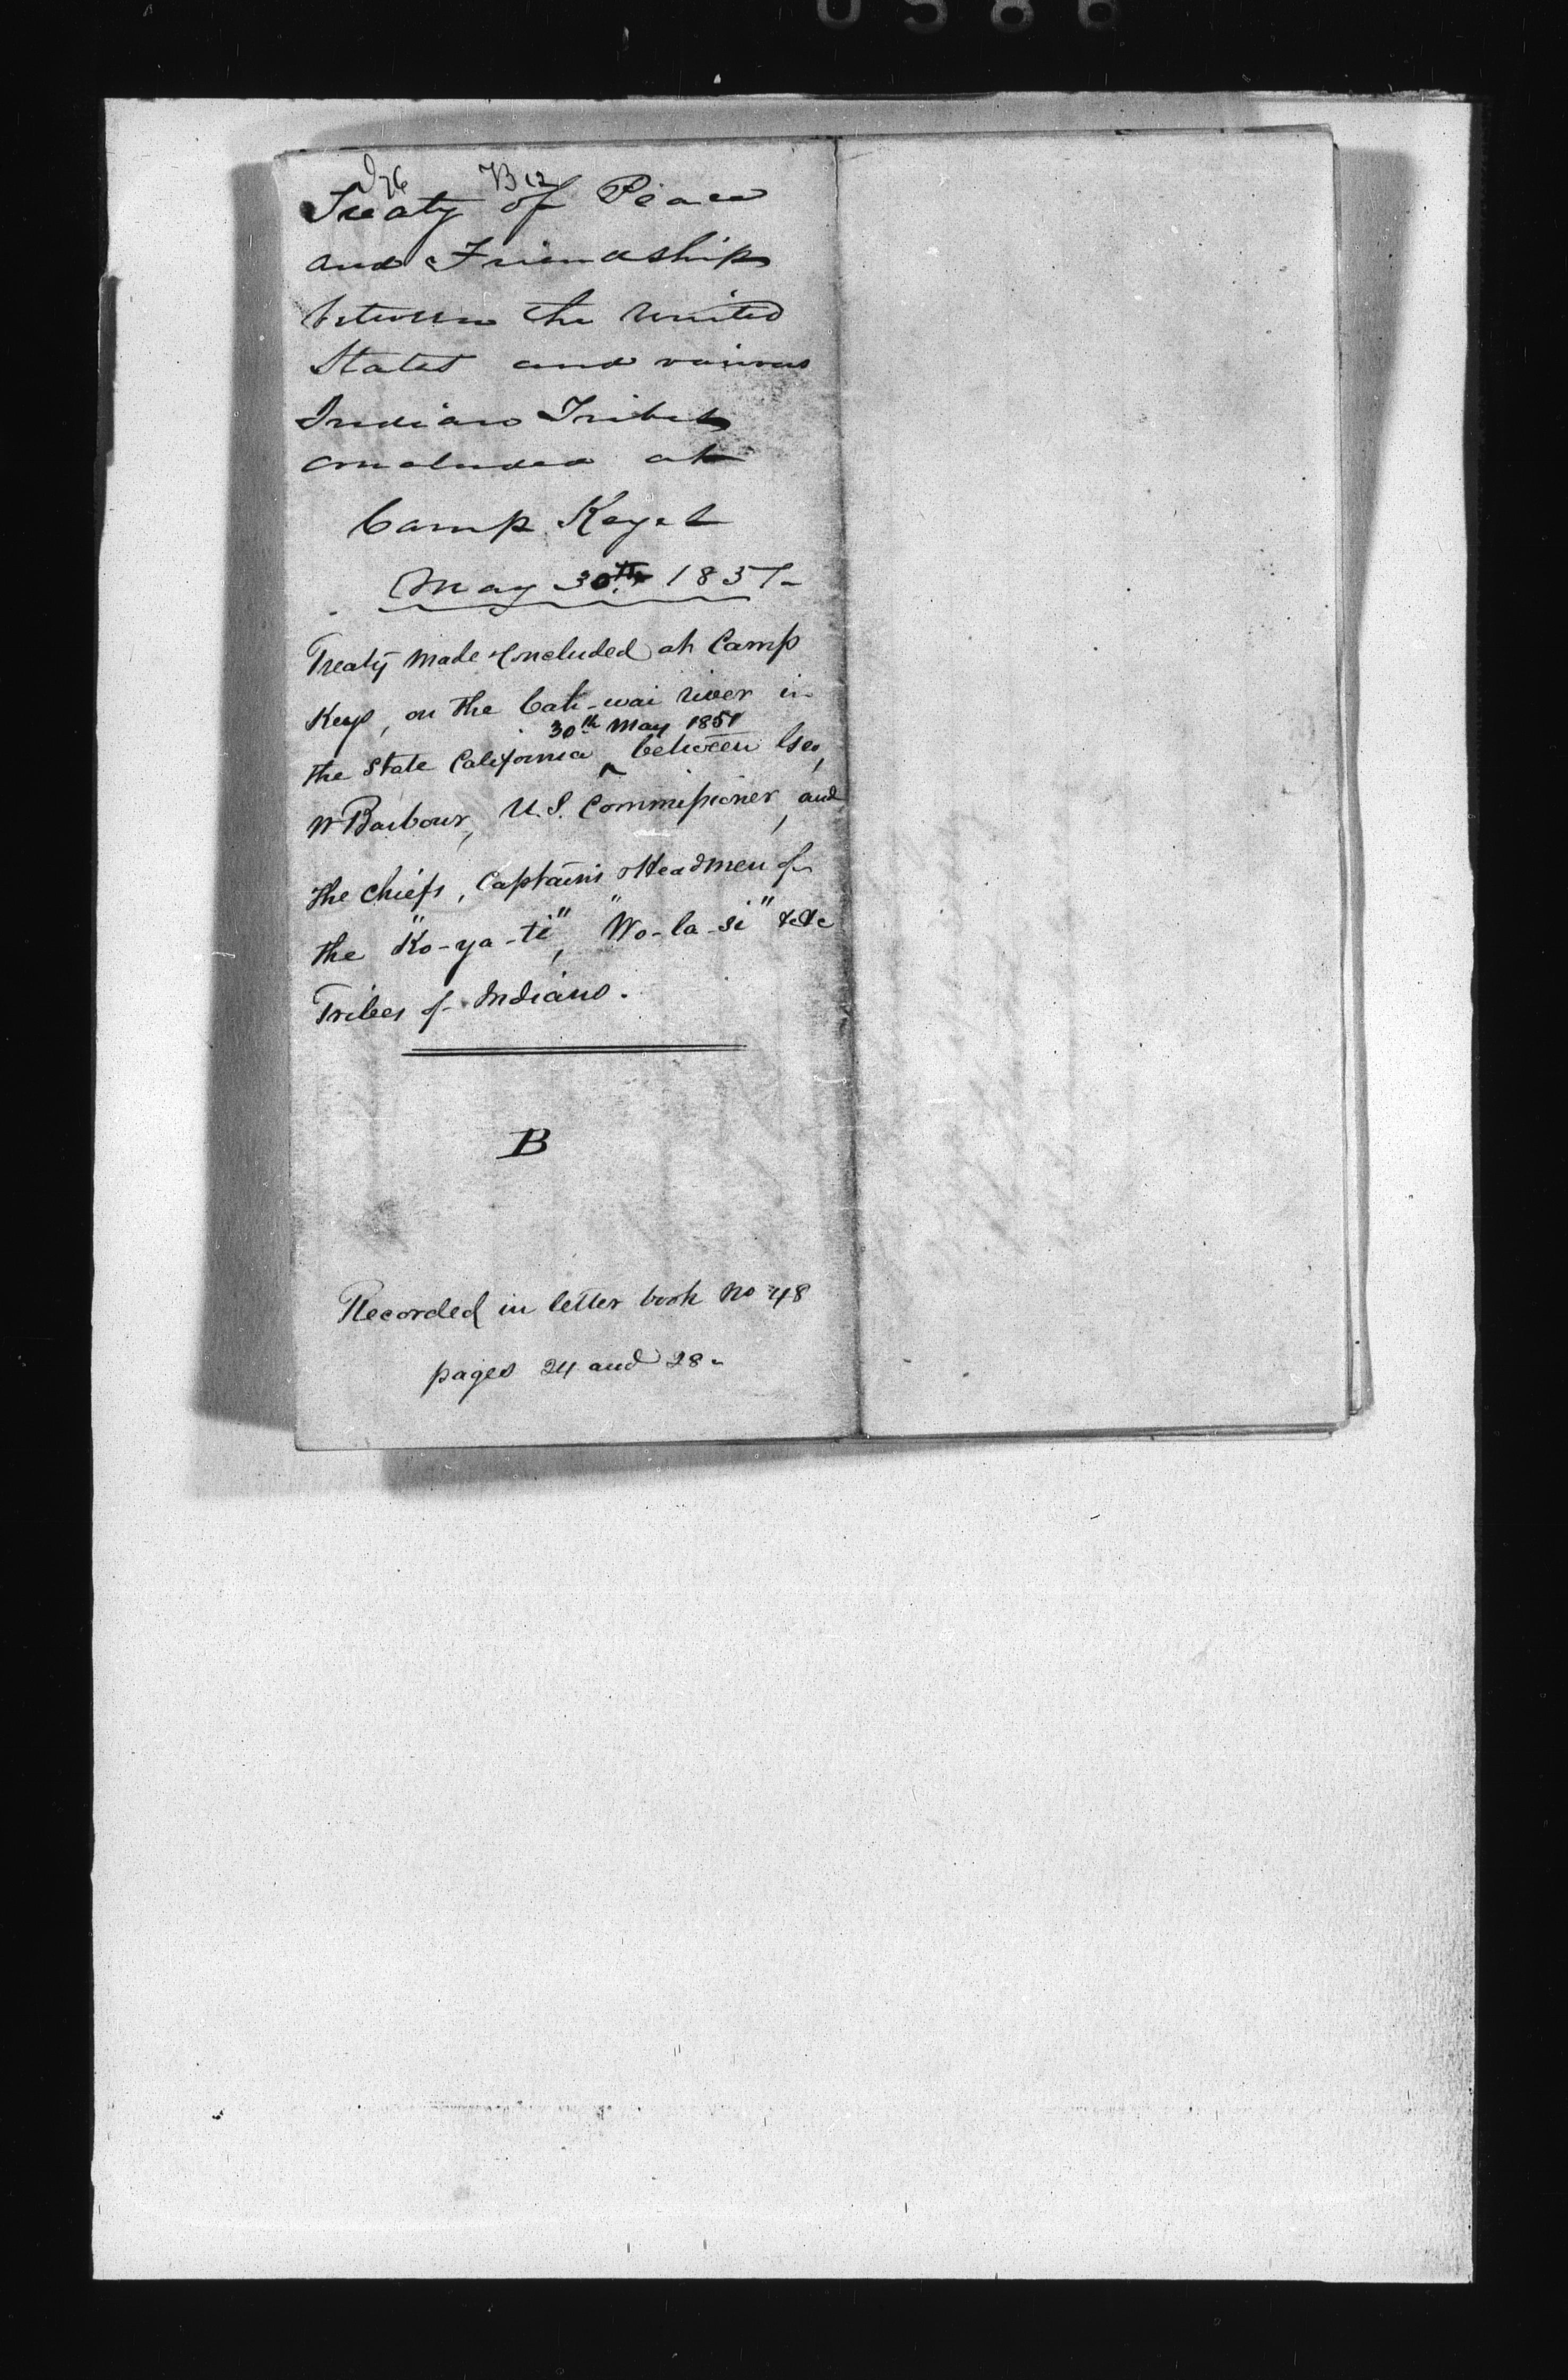 B 12
Treaty of Peace
and Friendship
between the United
States and various
Indian Tribes
concluded at
Camp Keyes
May 30th 1851
Treaty made & concluded at Camp
Keyes, on the Cah-wai river in
30th May 1851
the State California ‸ between Geo,
W Barbour, U.S. Commissioner, and
the chiefs, Captains & Headmen of
the "Ko-ya-te", "Wo-la-si" &c &c
Tribes of Indians.
B
Recorded in letter book No 48
pages 24 and 28.